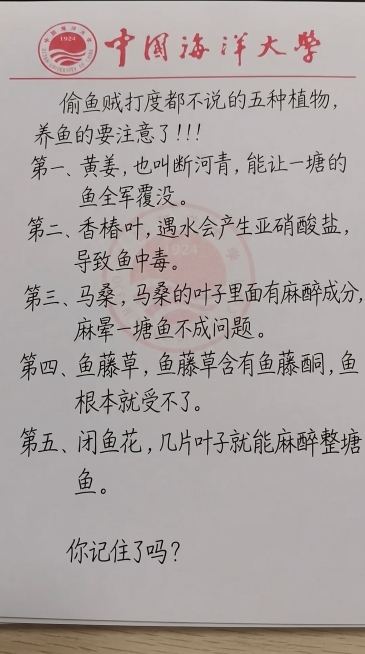 1924
中国海洋大学
偷鱼贼打度都不说的五种植物，
养鱼的要注意了!!!
第一、黄姜，也叫断河青，能让一塘的
鱼全军覆没。
第二、香椿叶，遇水会产生亚硝酸盐，
导致鱼中毒。
第三、马桑，马桑的叶子里面有麻醉成分，
麻晕一塘鱼不成问题。
第四、鱼藤草，鱼藤草含有鱼藤酮，鱼
根本就受不了。
第五、闭鱼花，几片叶子就能麻醉整塘
鱼。
你记住了吗？